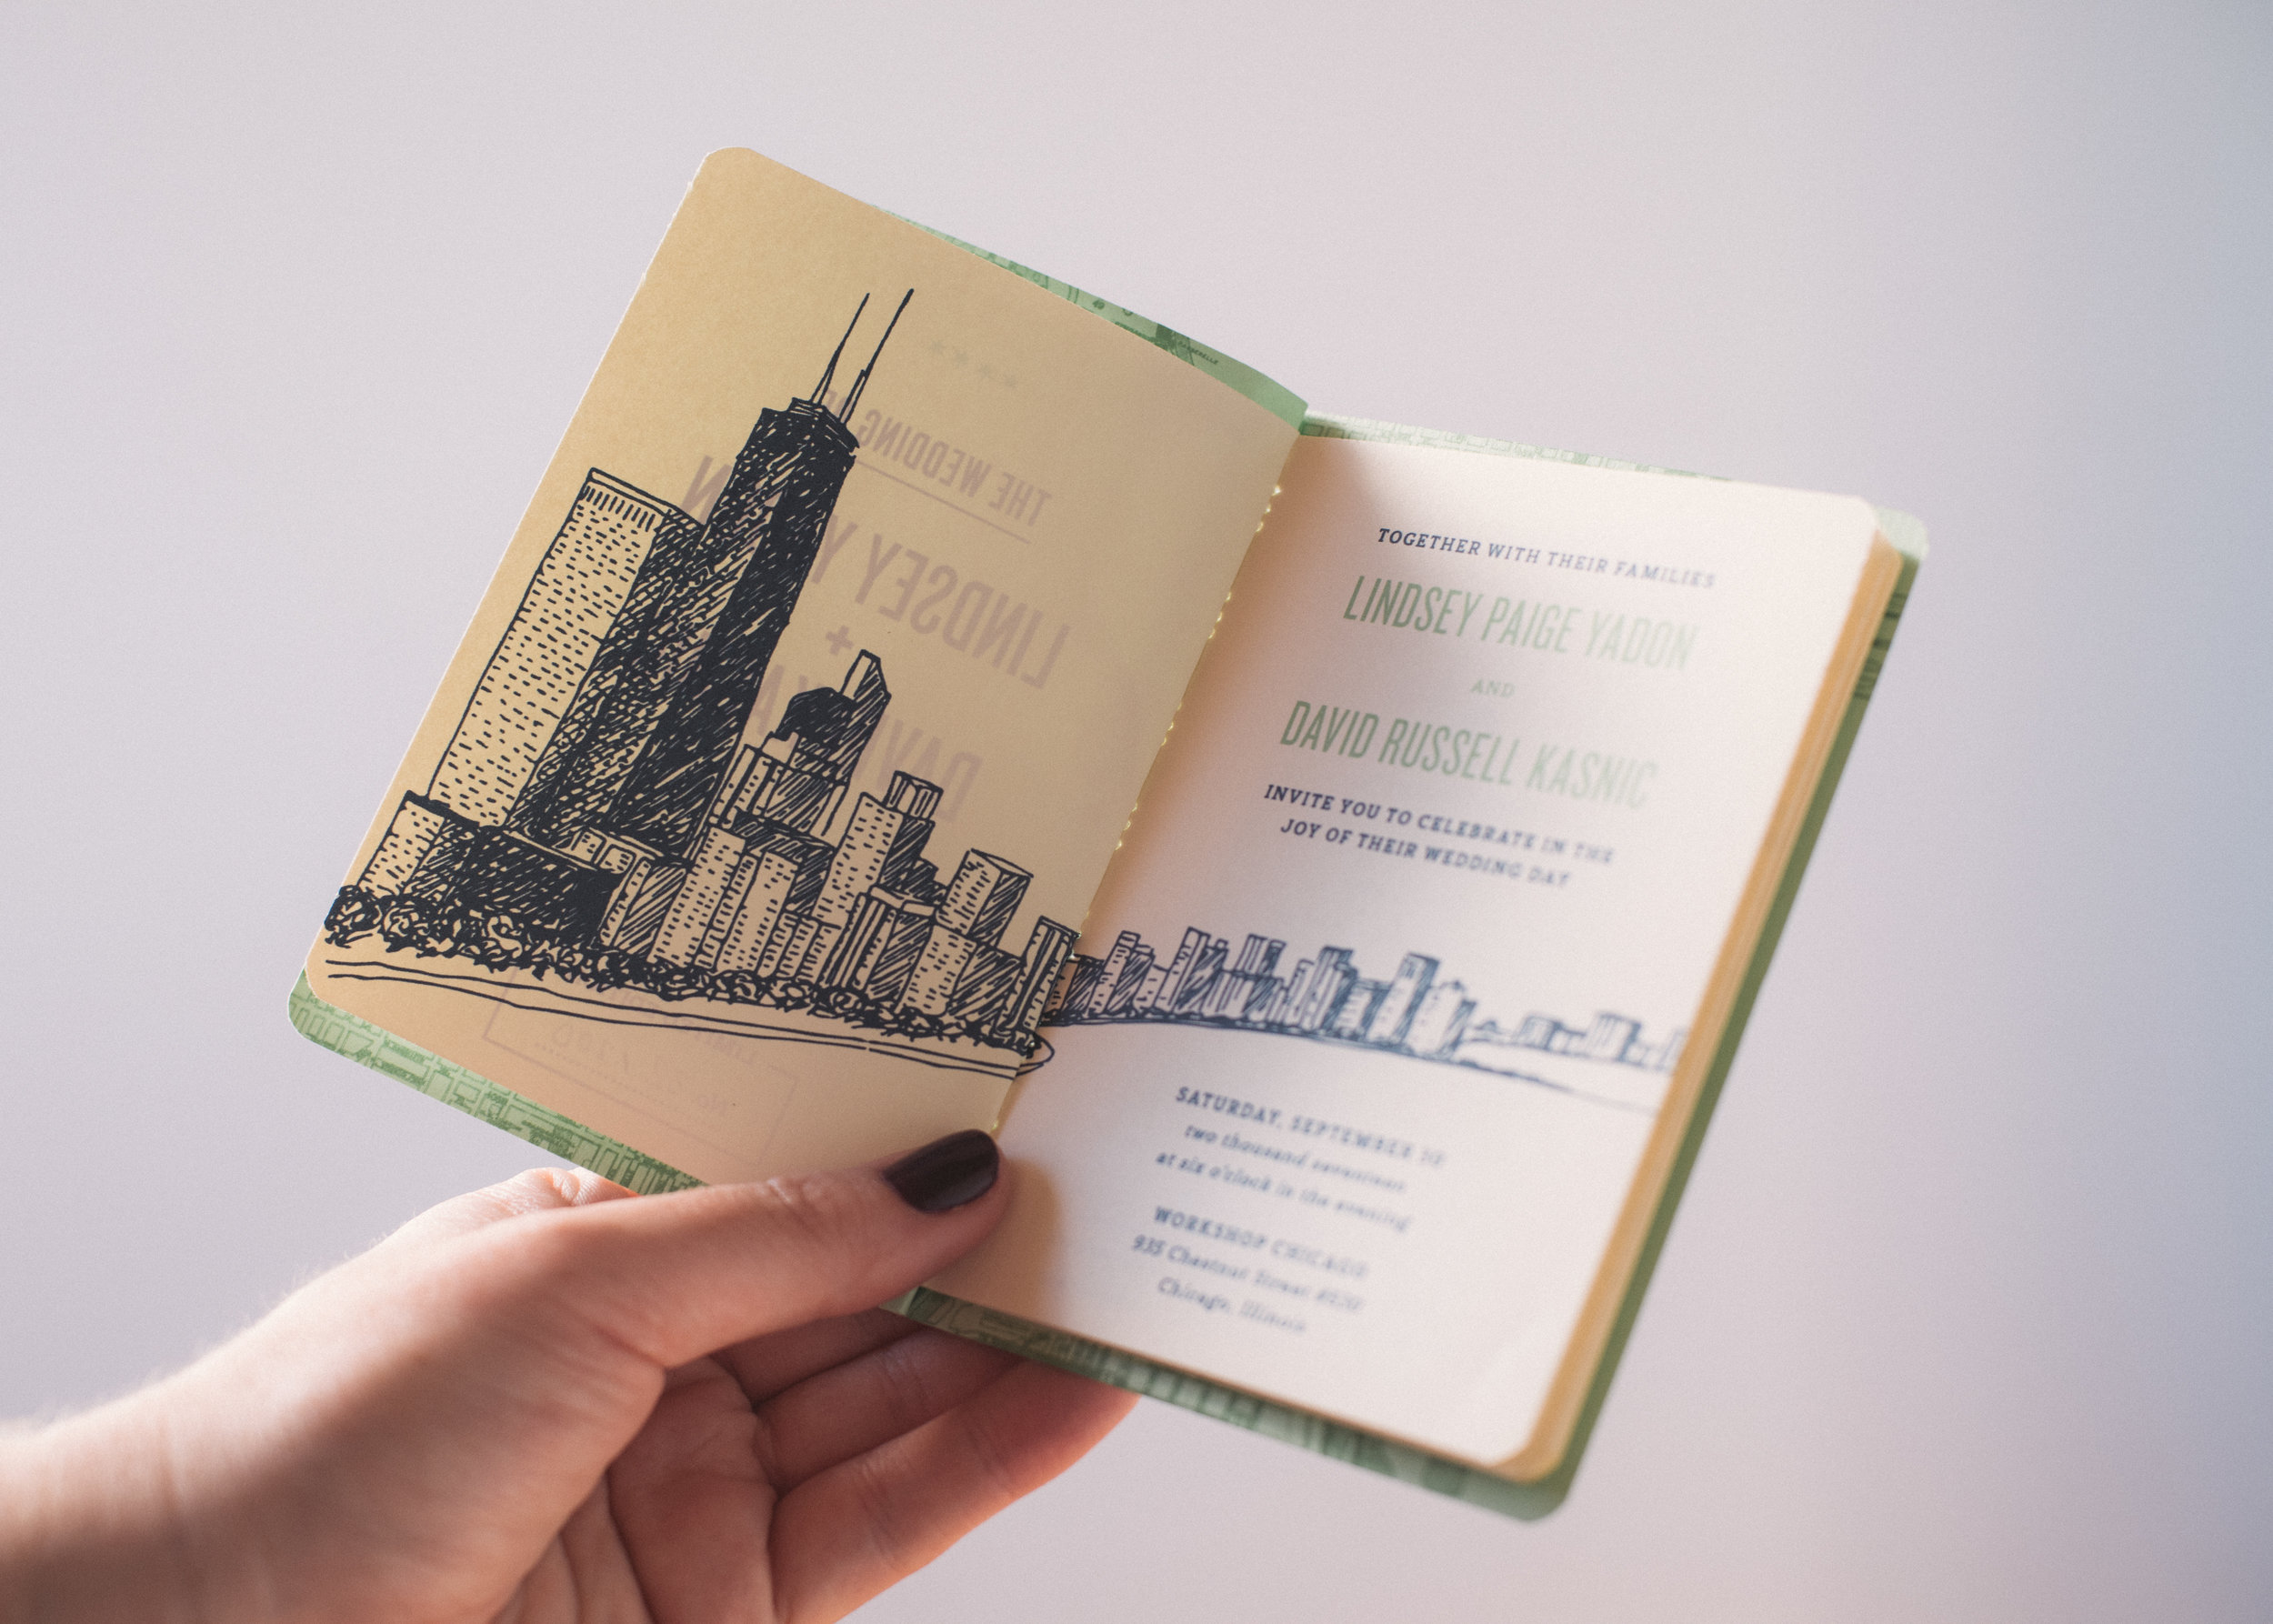 THE WEDDING OF
LINDSEY Y
+
DAVI
TOGETHER WITH THEIR FAMILIES
LINDSEY PAIGE YADON
AND
DAVID RUSSELL KASNIC
INVITE YOU TO CELEBRATE IN THE
JOY OF THEIR WEDDING DAY
SATURDAY, SEPTEMBER
two thousand seventeen
at six o'clock in the evening
WORKSHOP CHICAGO
935 Chestnut Street
Chicago, Illinois